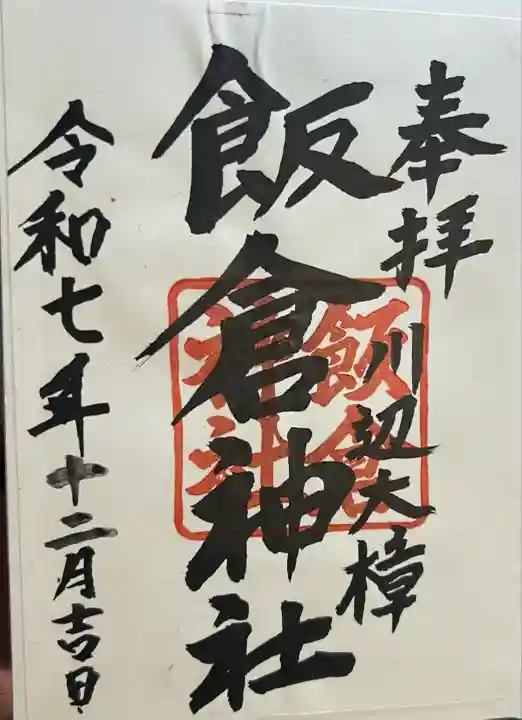 奉拝
川辺大樟
飯倉神社
飯倉
神社
令和七年十二月吉日